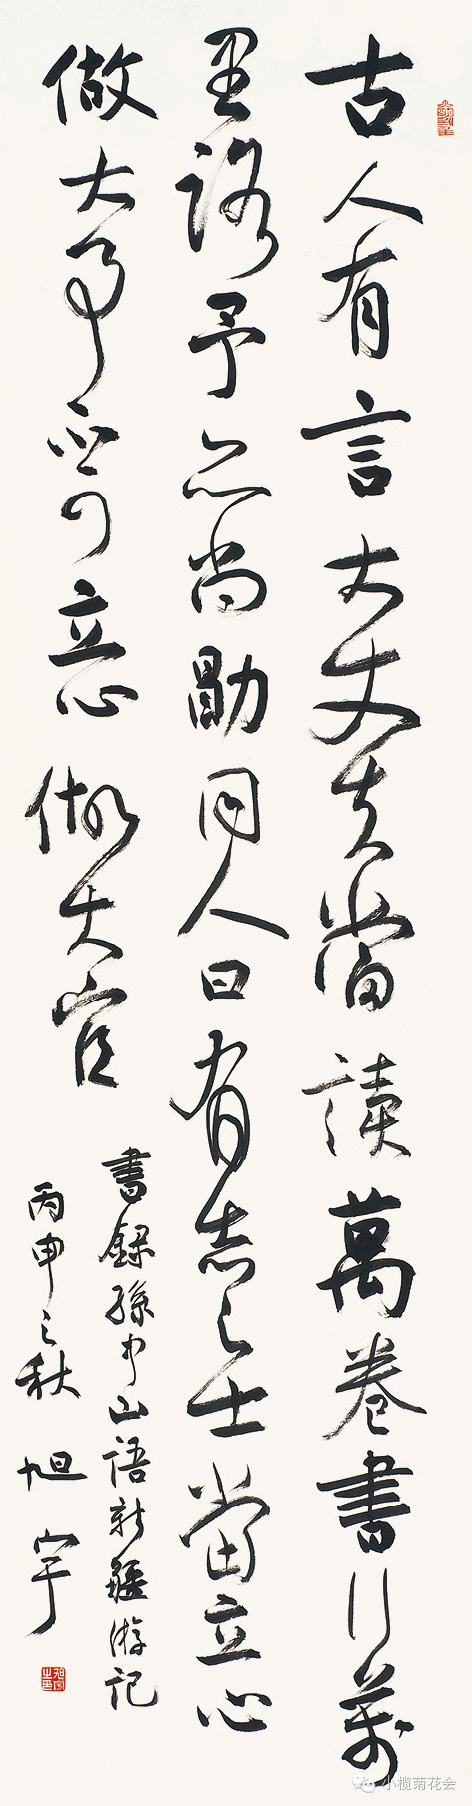 古人有言大丈夫當讀萬卷書行萬
里路予亦尚勖同人曰有志之士當立心
做大事不可立心做大官
書錄孫中山語新疆游記
丙申之秋 旭宇
小榄菊花会